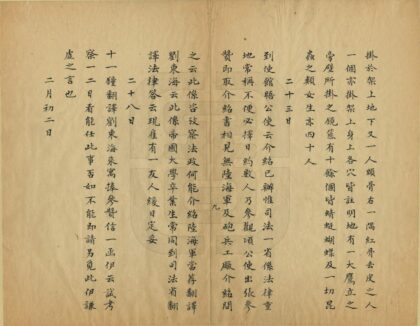 掛於架上地下又一人頭骨右一隅紅骨去皮之人
一個亦掛架上身上各穴皆註明地有一大鷹立之
旁壁所掛之鏡蔗有十餘個皆蜻蜓蝴蝶及一切昆
蟲之類女生亦四十人
二十三日
到使館謁公使云介紹已辦惟司法一省係法律重
地常稱不便必擇日約數人乃參觀須公使出張參
贊即取介紹書相見無陸海軍及砲兵工廠介紹問
九
之云此係咨歧察法政何能介紹陸海軍當荐翻譯
劉東海云此係帝國大學卒業生常同到司法省翻
譯法律答云現在有一友人緩日定妥
二十八日
十一鐘翻譯劉東海來寓捧參贊信一函伊云試考
察一二日看能任此事否如不能即請另覓此伊謙
虛之言也
二月初二日